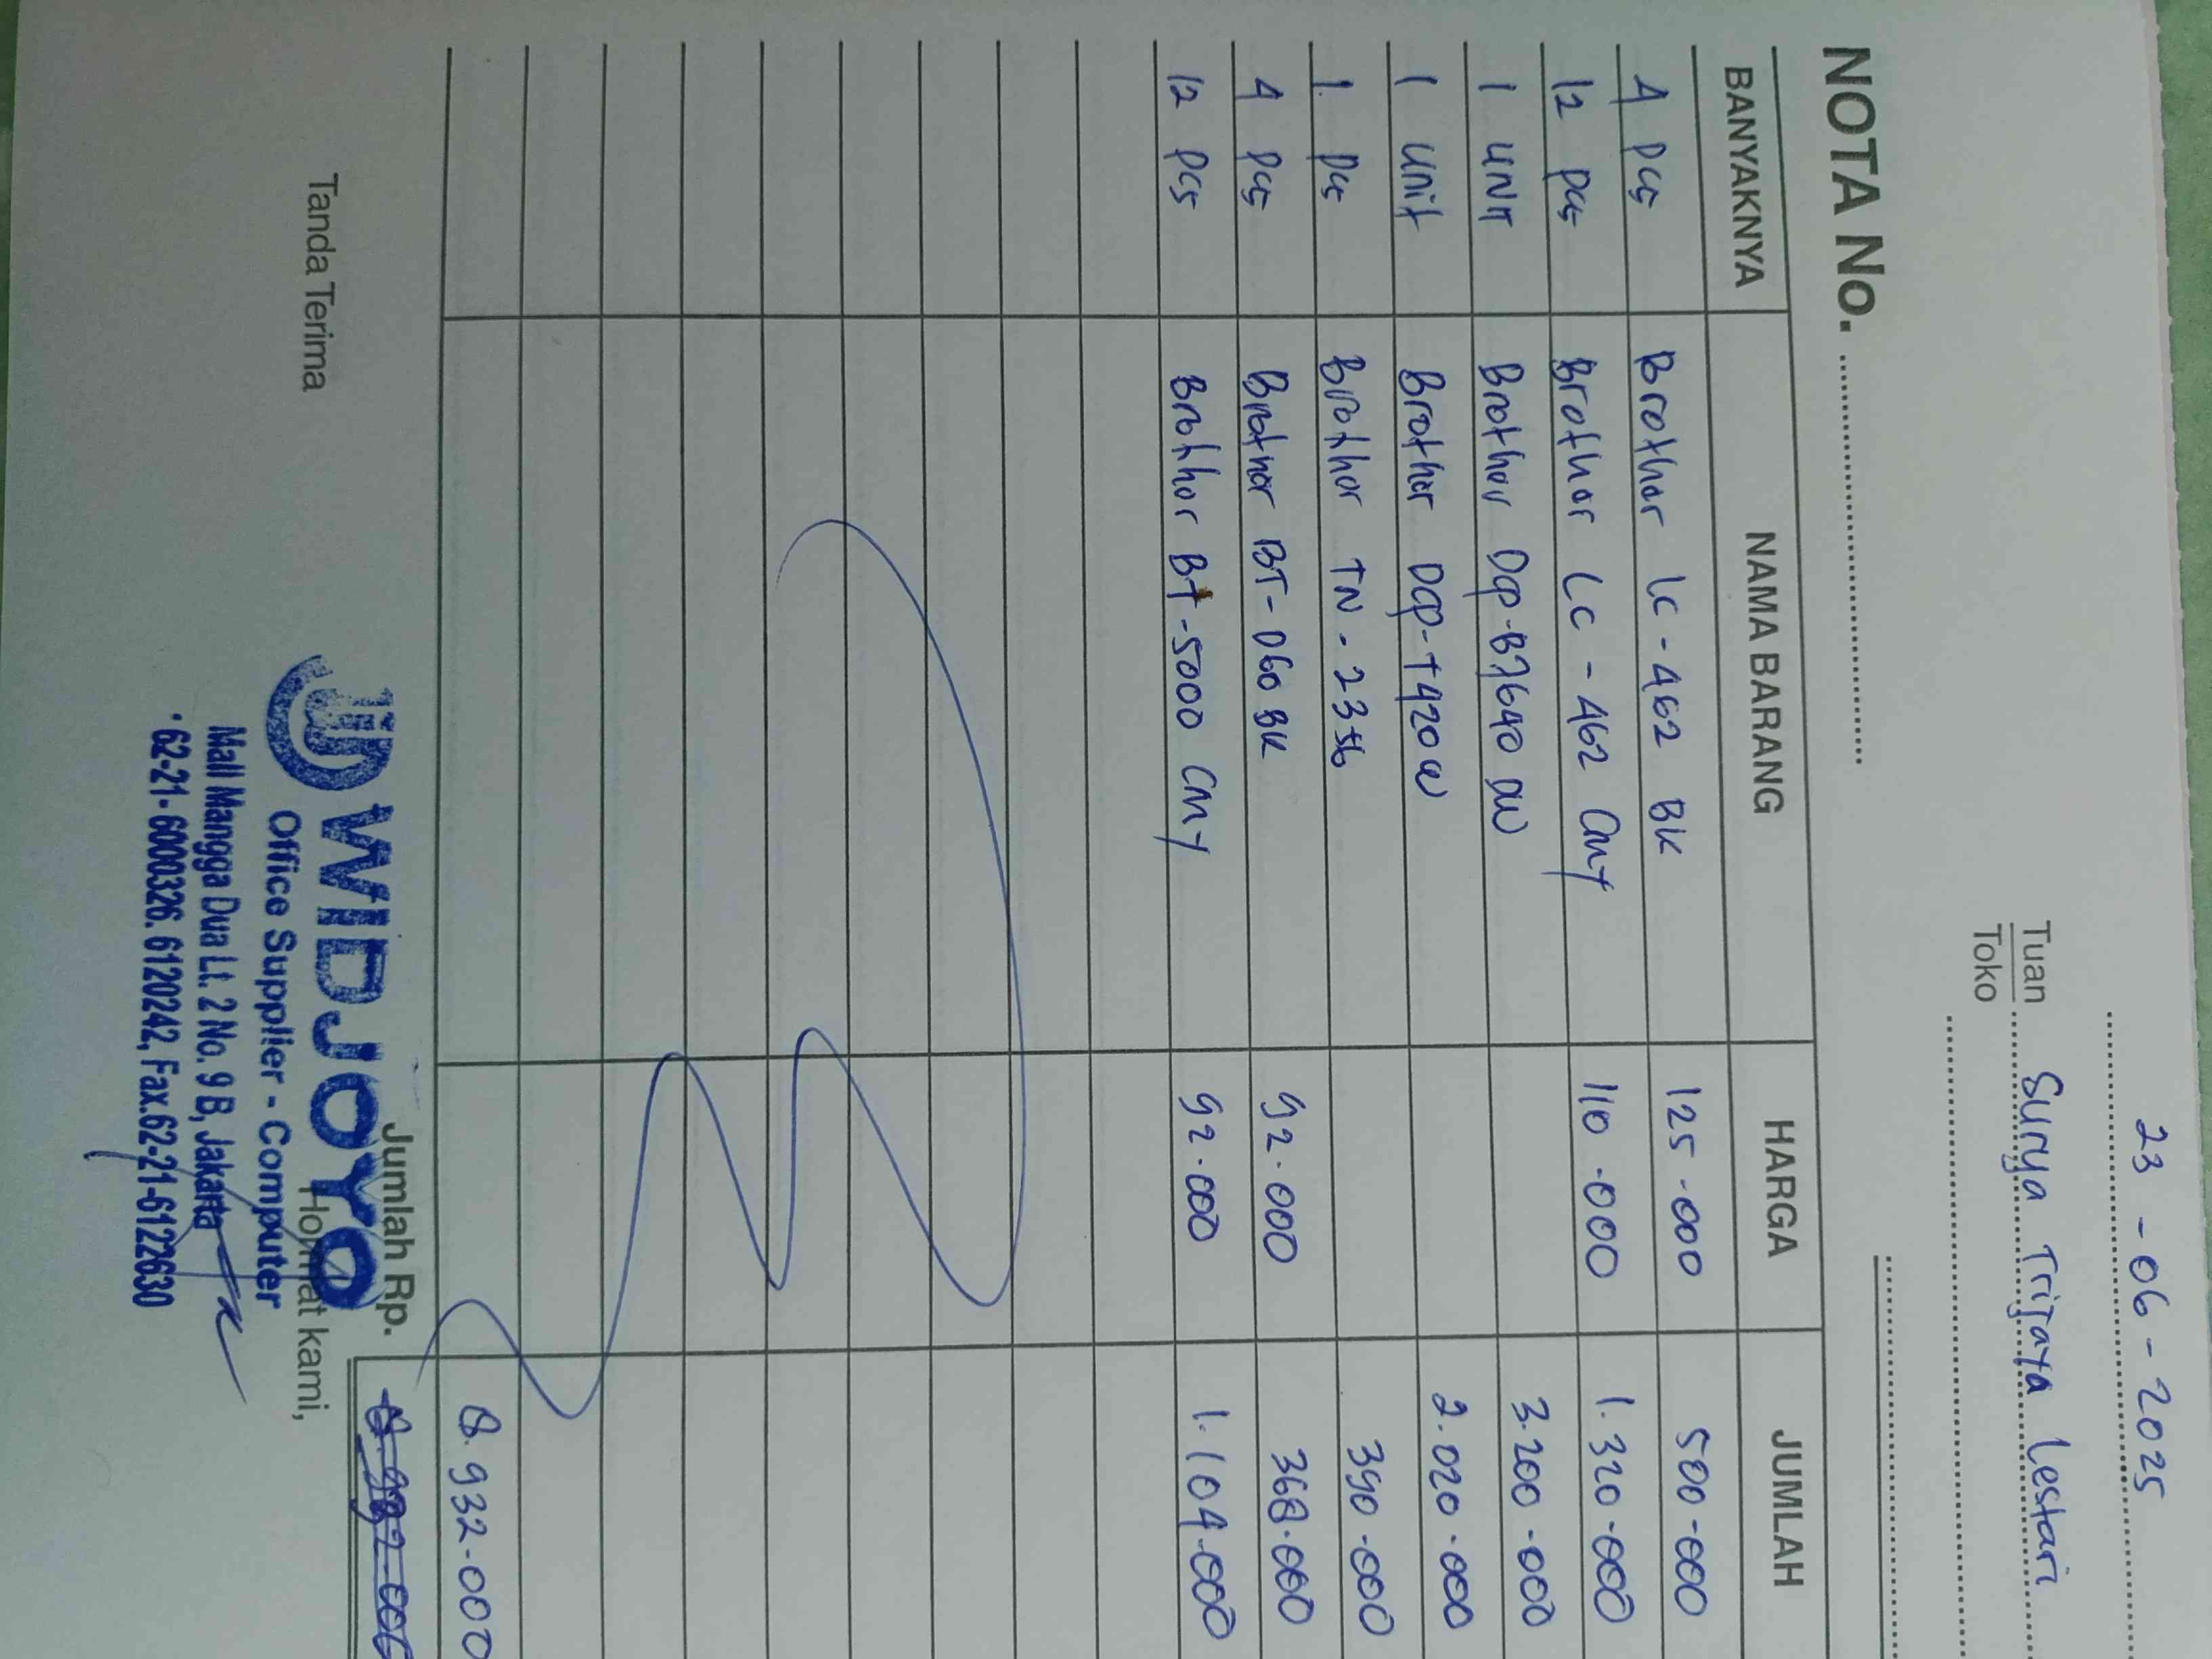 23-06-2025
Tuan Surya Trijaya Lestari
Toko
NOTA No.
BANYAKNYA NAMA BARANG HARGA JUMLAH
4 pcs Brother LC-462 BK 125.000 500.000
12 pcs Brother LC-462 CMY 110.000 1.320.000
1 UNIT Brother Dcp-B7640 DW 3.200.000
1 Unit Brother Dcp-T420W 2.020.000
1 pcs Brother TN-2356 390.000
4 pcs Brother BT-D60 BK 92.000 368.000
12 pcs Brother BT-5000 CMY 92.000 1.104.000
8.932.000
Jumlah Rp.
Tanda Terima Hormat kami,
WIDJOYO
Office Supplier - Computer
Mall Mangga Dua Lt. 2 No. 9 B, Jakarta
62-21-6000326. 6120242, Fax.62-21-6122630